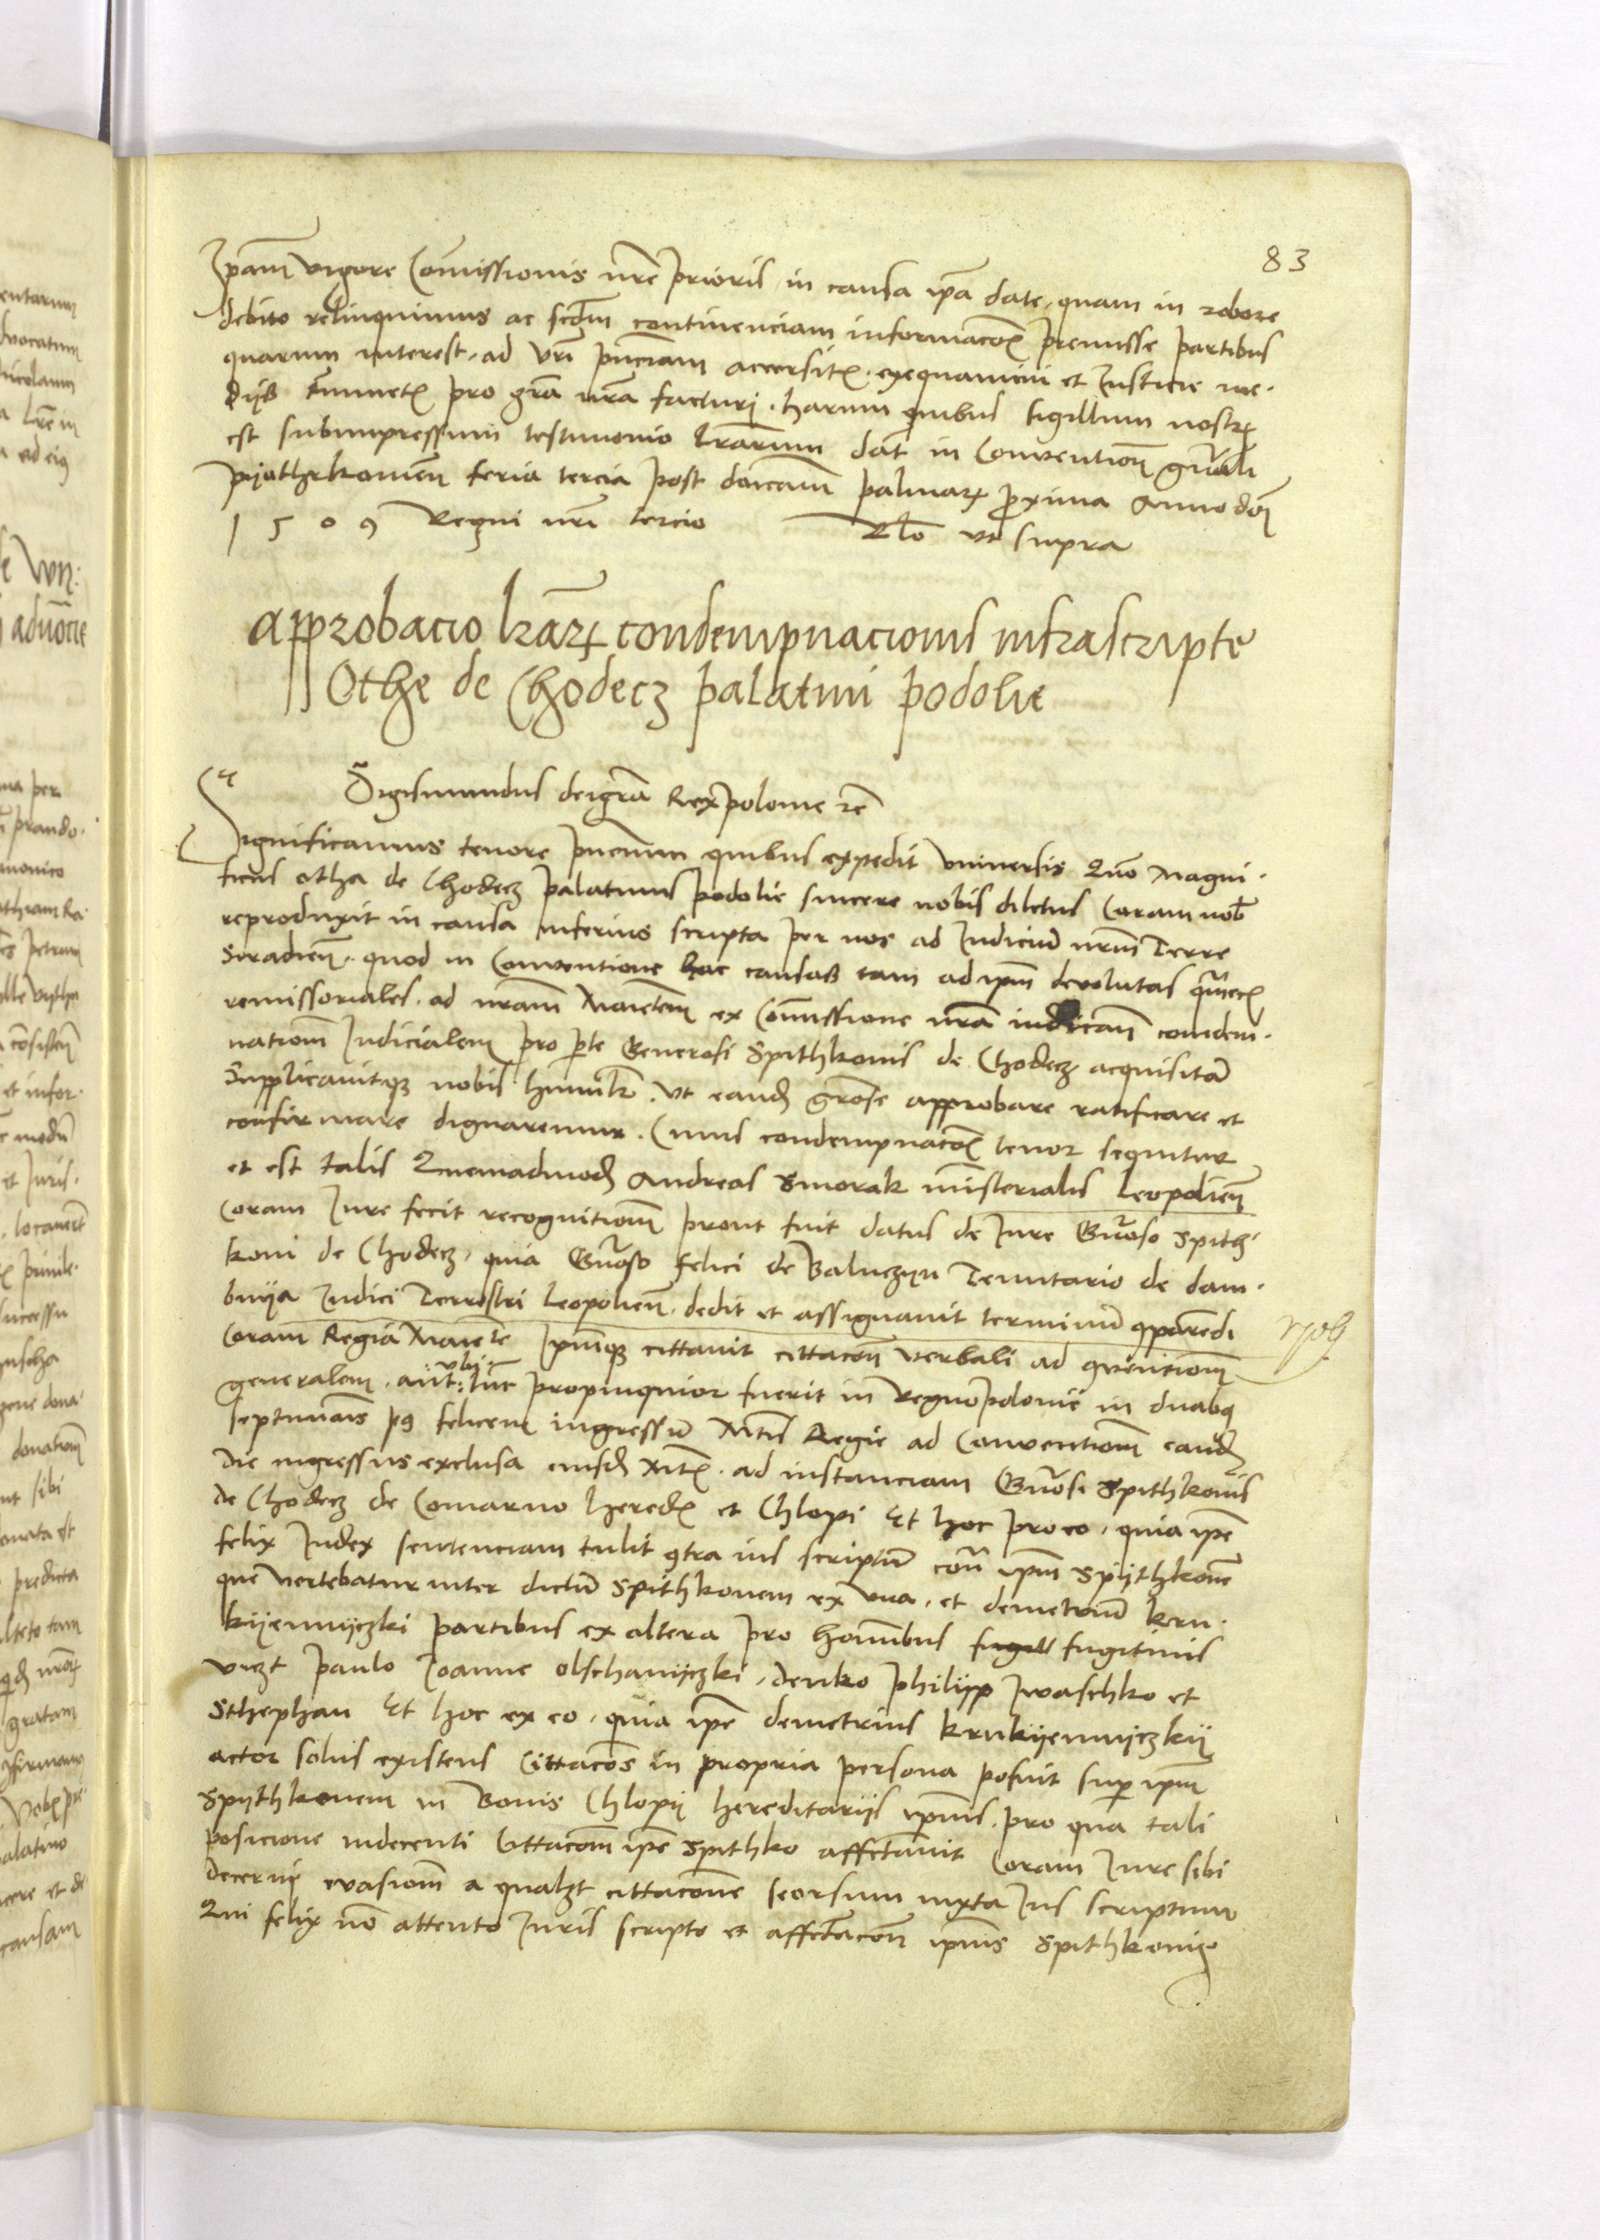 83
Ipam vigore Comissionis nre prioris in causa ipa date, quam in robore
debito relinquimus ac scdm continenciam informacois premisse partibus
quarum interest, ad vri pnciam accersitis, exequamini et Iusticie me-
dijs pro gra nra facturi. harum quibus sigillum nostrum
est subimpressum testimonio lrarum dat in Conventione gnrali
pijothrkoviens feria tercia post dnicam palmarum proxima Anno dni
1509 Regni nri tercio Rlo ut supra
Approbacio lrarum condempnacionis infrascripte
Othe de Chodecz palatini podolie
Sigismundus dei gra Rex polonie etc
Significamus tenore pncium quibus expedit vniuersis Quo Magni-
ficus otha de Chodecz palatinus podolie sincere nobis dilctus Coram nob
reproduxit in causa inferius scripta per nos ad Iudiciu nrum Terre
Siradien. quod in Conventione hac causas tam ad ipm devolutas
remissoriales. ad nram Maiestem ex Comissione nra condem-
nationem Iudicialem pro pte Generosi Spithkonis de Chodecz acquisitam
Supplicavitque nobis humilr. Vt eand grose approbare ratificare et
confirmare dignaremur. Cuius condempnacois tenor sequitur
et est talis Quemadmod Andreas Smorak ministerialis Leopolien
Coram Iure fecit recognitionem prout fuit datus de Iure Gnroso Spith-
koni de Chodecz, quia Gnroso felici de Baluczyn Tenutario de dam-
bnija Iudici Terrestri leopolien. dedit et assignavit terminu cparendi
Coram Regia Maieste Ipmque cittauit cittacoe verbali ad conventionem
generalem, aut vbi tunc propinquior fuerit in Regno polonie in duabus
septimanis post felicem ingressu Mtis Regie ad Conventionem eand
die ingressus exclusa eiusd Mtis. ad instanciam Gnrosi Spithkonis
de Chodecz de Comarno heredis et Chlopi Et hoc pro eo, quia ipe
felix Iudex sentenciam tulit contra ius scriptu contra ipm Spijthkone
que vertebatur inter dictu Spithkonem ex vna, et demetriu kru-
kijenijczki partibus ex altera pro hominibus fugitiuis
viczt paulo Ioanne olschanijczki, denko philijp Iwaschko et
Sthephan Et hoc ex eo, quia ipe demetrius krukijenijczkij
actor solus existens Cittacoes in propria persona posuit super ipm
Spijthkonem in Bonis Chlopij hereditarijs ipius, pro qua tali
posicione indecenti Cittacom ipe Spithko affectauit Coram Iure sibi
decerni evasionem a qualzt cittacoe seorsum iuxta Ius scriptum
Qui felix no attento Iuris scripto et affectacoe ipius Spithkonis